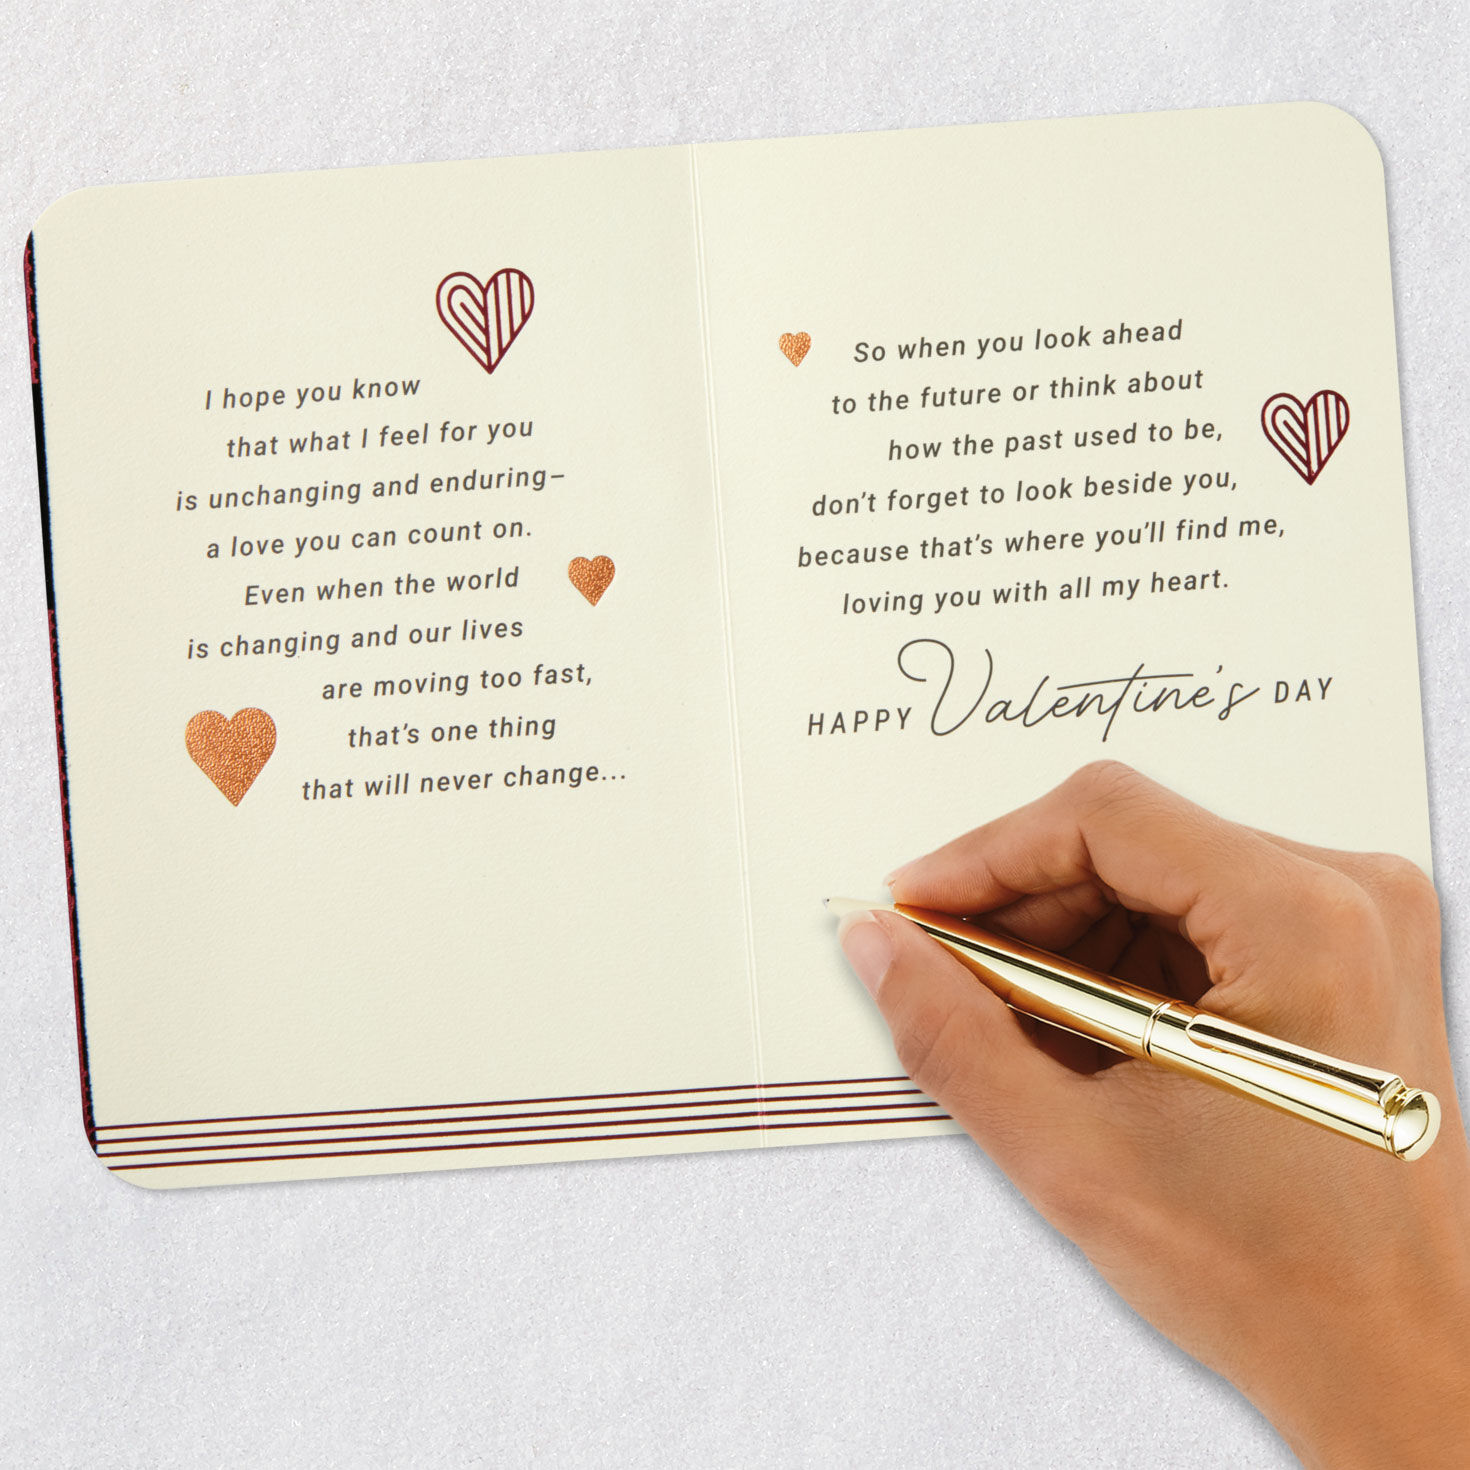 I hope you know
that what I feel for you
is unchanging and enduring–
a love you can count on.
Even when the world
is changing and our lives
are moving too fast,
that's one thing
that will never change...
So when you look ahead
to the future or think about
how the past used to be,
don't forget to look beside you,
because that's where you'll find me,
loving you with all my heart.
HAPPY Valentine's DAY